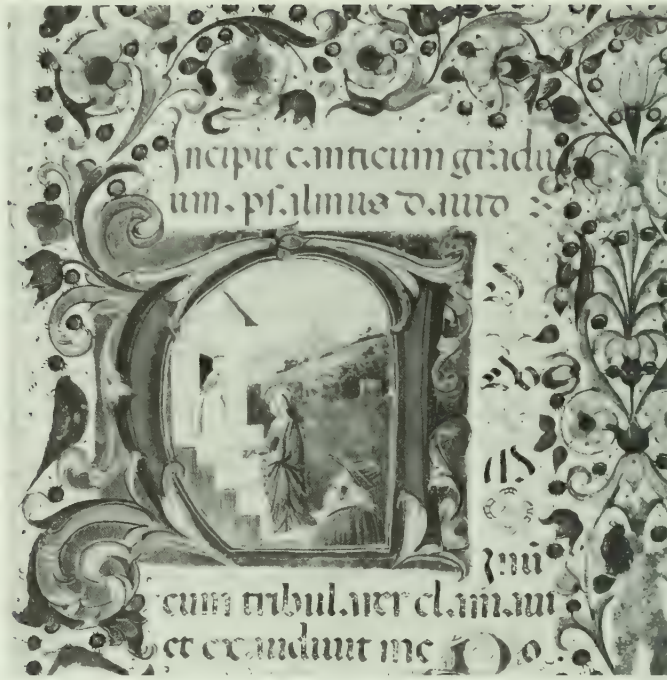 Incipit canticum gradu
um. psalmus dauid
A D
DO
M
inū
cum tribularer clamaui
et exaudiuit me Do